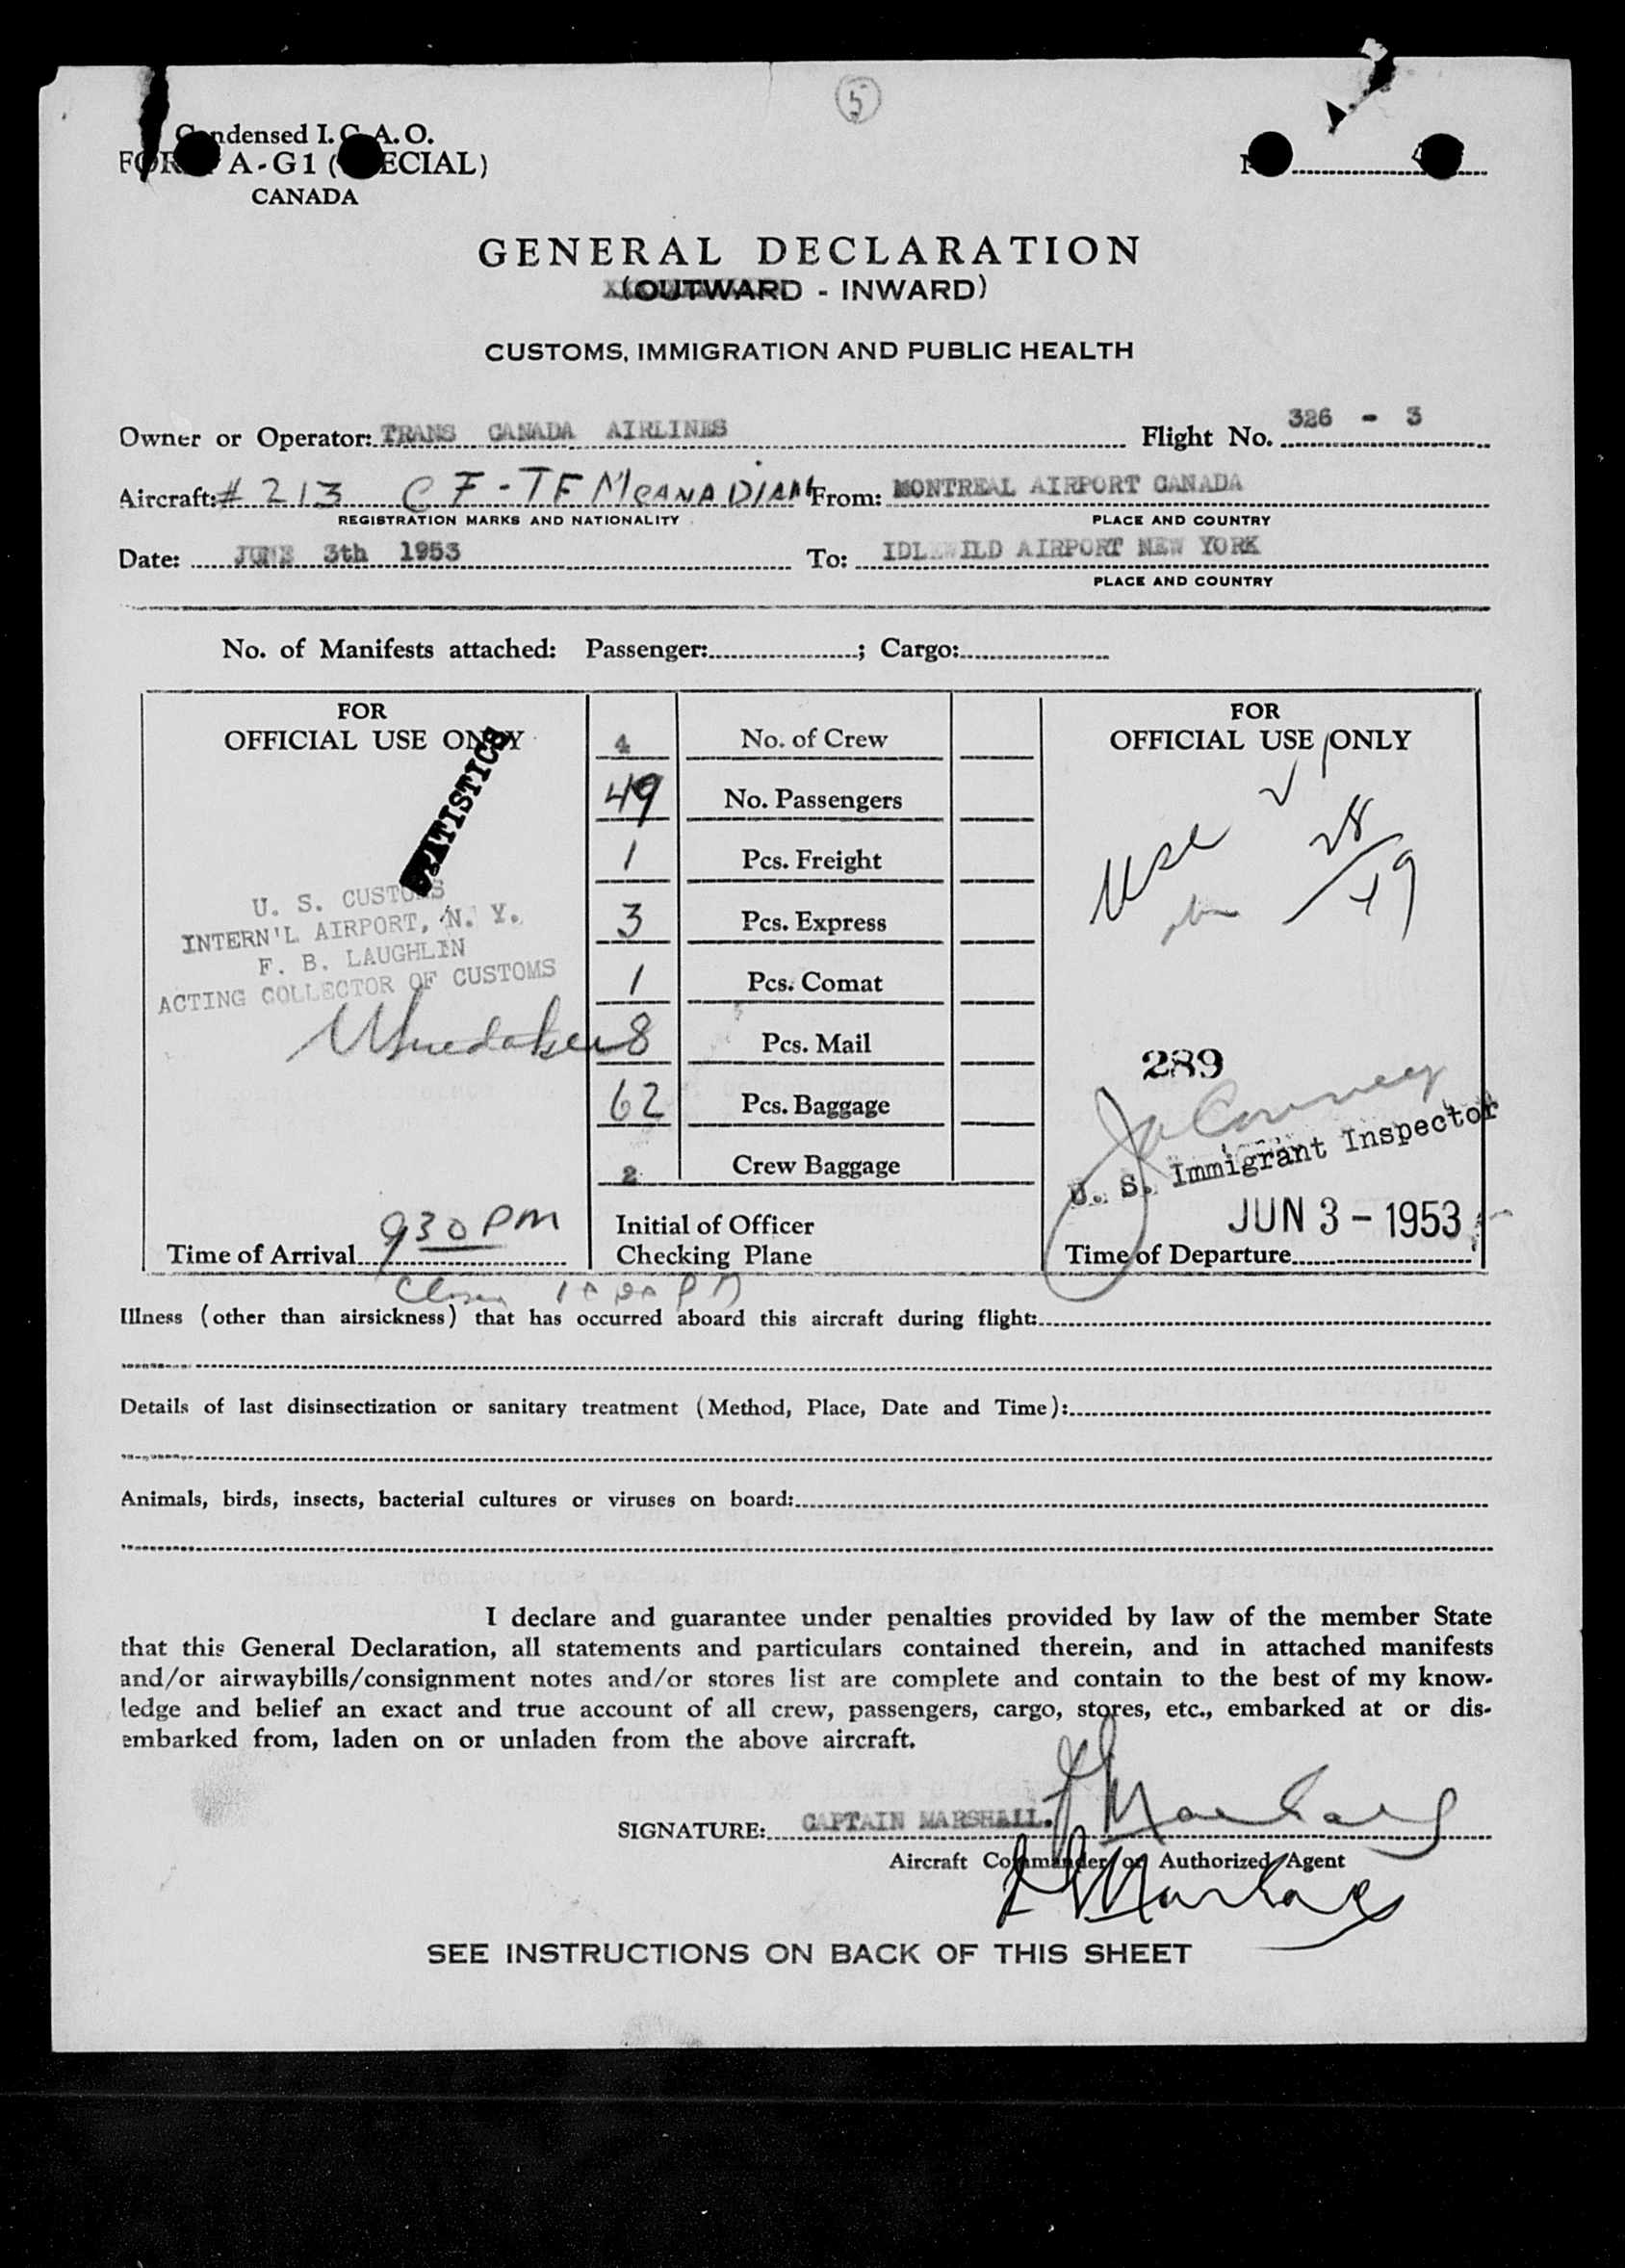 5
Condensed I.C.A.O.
FORM A-G1 (SPECIAL)
CANADA
GENERAL DECLARATION
(OUTWARD - INWARD)
CUSTOMS, IMMIGRATION AND PUBLIC HEALTH
Owner or Operator: TRANS CANADA AIRLINES Flight No. 326 - 3
Aircraft: # 213 CF-TFM CANADIAN From: MONTREAL AIRPORT CANADA
REGISTRATION MARKS AND NATIONALITY PLACE AND COUNTRY
Date: JUNE 3th 1953 To: IDLEWILD AIRPORT NEW YORK
PLACE AND COUNTRY
No. of Manifests attached: Passenger: ; Cargo:
FOR
OFFICIAL USE ONLY
STATISTICS
U. S. CUSTOMS
INTERN'L AIRPORT, N. Y.
F. B. LAUGHLIN
ACTING COLLECTOR OF CUSTOMS
Time of Arrival 930 PM
4 No. of Crew
49 No. Passengers
1 Pcs. Freight
3 Pcs. Express
1 Pcs. Comat
8 Pcs. Mail
62 Pcs. Baggage
2 Crew Baggage
Initial of Officer
Checking Plane
FOR
OFFICIAL USE ONLY
28
49
289
U. S. Immigrant Inspector
JUN 3 - 1953
Time of Departure
Illness (other than airsickness) that has occurred aboard this aircraft during flight:
Details of last disinsectization or sanitary treatment (Method, Place, Date and Time):
Animals, birds, insects, bacterial cultures or viruses on board:
I declare and guarantee under penalties provided by law of the member State
that this General Declaration, all statements and particulars contained therein, and in attached manifests
and/or airwaybills/consignment notes and/or stores list are complete and contain to the best of my know-
ledge and belief an exact and true account of all crew, passengers, cargo, stores, etc., embarked at or dis-
embarked from, laden on or unladen from the above aircraft.
SIGNATURE: CAPTAIN MARSHALL.
Aircraft Commander or Authorized Agent
SEE INSTRUCTIONS ON BACK OF THIS SHEET